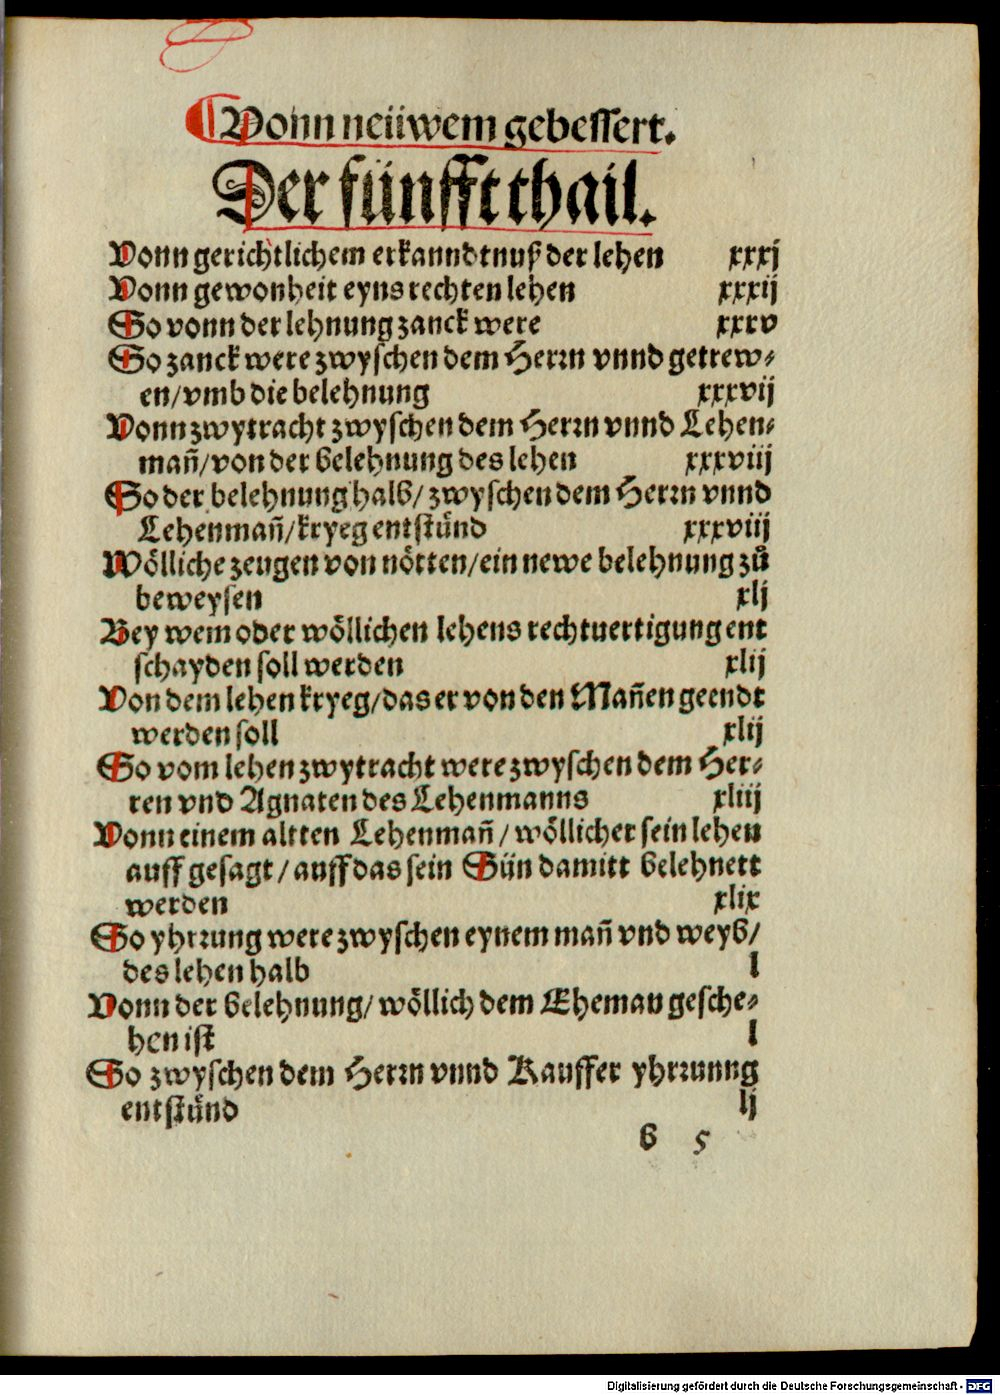 Vonn neüwem gebessert.
Der fünfft thail.
Vonn gerichtlichem erkanndtnuß der lehen xxxj
Vonn gewonheit eyns rechten lehen xxxij
So vonn der lehnung zanck were xxxv
So zanck were zwyschen dem Herrn vnnd getrew⸗
en/vmb die belehnung xxxvij
Vonn zwytracht zwyschen dem Herrn vnnd Lehen⸗
man̄/von der belehnung des lehen xxxviij
So der belehnung halb/ zwyschen dem Herrn vnnd
Lehenman̄/kryeg entstünd xxxviij
Wölliche zeugen von nötten/ein newe belehnung zů
beweysen xlj
Bey wem oder wöllichen lehens rechtuertigung ent
schayden soll werden xlij
Von dem lehen kryeg/das er von den Man̄en geendt
werden soll xlij
So vom lehen zwytracht were zwyschen dem Her⸗
ren vnd Agnaten des Lehenmanns xliij
Vonn einem altten Lehenman̄/ wöllicher sein lehen
auff gesagt/ auff das sein Sün damitt belehnett
werden xlix
So yhrrung were zwyschen eynem man̄ vnd weyb/
des lehen halb l
Vonn der belehnung/ wöllich dem Eheman gesche⸗
hen ist l
So zwyschen dem Herrn vnnd Kauffer yhrrunng
entstünd lj
b 5
Digitalisierung gefördert durch die Deutsche Forschungsgemeinschaft - DFG